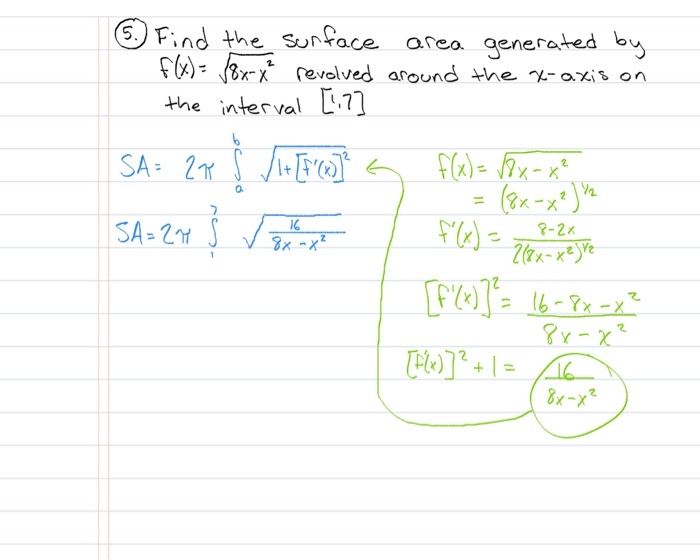 5. Find the surface area generated by
f(x) = √8x-x² revolved around the x-axis on
the interval [1,7]
SA = 2π ∫ₐᵇ √1+[f'(x)]²
SA = 2π ∫₁⁷ √16/(8x-x²)
f(x) = √8x-x²
= (8x-x²)^1/2
f'(x) = 8-2x / 2(8x-x²)^1/2
[f'(x)]² = 16-8x-x² / 8x-x²
[f'(x)]² + 1 = 16 / 8x-x²